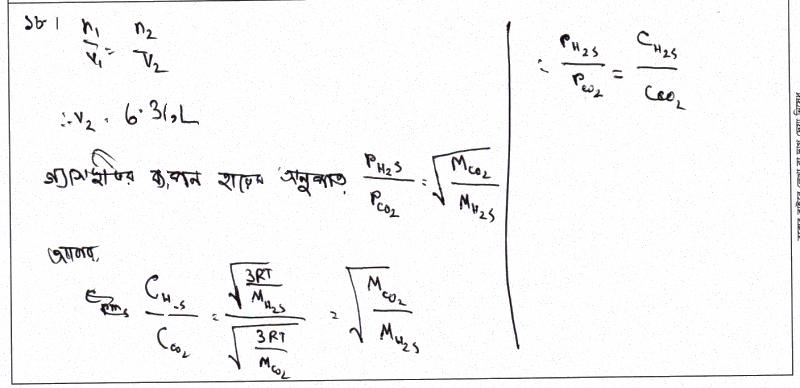 ১৮। n₁/V₁ = n₂/V₂
∴ V₂ = 6.31 L
গ্যাস দুইটির ব্যাপন হারের অনুপাত, P_H₂S/P_CO₂ = √(M_CO₂/M_H₂S)
আবার,
C_H₂S/C_CO₂ = √(3RT/M_H₂S)/√(3RT/M_CO₂) = √(M_CO₂/M_H₂S)
∴ P_H₂S/P_CO₂ = C_H₂S/C_CO₂